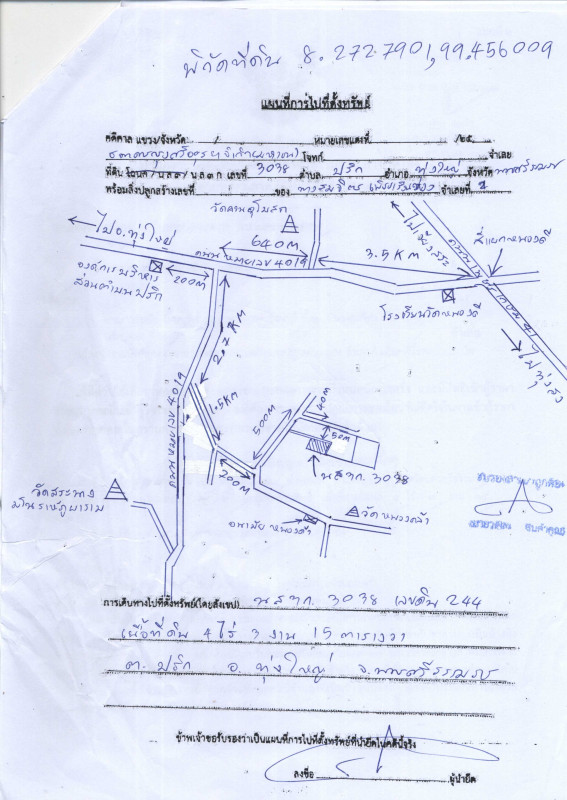 พิกัดที่ดิน 8.272790,99.456009
แผนที่การไปที่ตั้งทรัพย์
คดีศาล แขวง/จังหวัด / หมายเลขแดงที่ /๒๕
โจทก์ จำเลย
ที่ดิน โฉนด/น.ส.๓/น.ส.๓ ก. เลขที่ 3038 ตำบล ปริก อำเภอ ทุ่งใหญ่ จังหวัด นครศรีธรรมราช
พร้อมสิ่งปลูกสร้างเลขที่ ของ จำเลยที่ 1
ไป อ.ทุ่งใหญ่
640M
ถนนหมายเลข 4019
3.5KM
ไปเวียงสระ
สี่แยกหนองดี
องค์การบริหาร
ส่วนตำบลปริก
200M
โรงเรียนวัดหนองดี
ถนนหมายเลข 41
ไปทุ่งสง
2.7KM
ถนนหมายเลข 4019
1.5KM
500M
40M
50M
700M
น.ส.๓ก. 3038
วัดสระนาง
มโนราห์ภูผาราม
อนามัยหนองคล้า
วัดหนองคล้า
การเดินทางไปที่ตั้งทรัพย์(โดยสังเขป) น.ส.๓ก. 3038 เลขดิน 244
เนื้อที่ดิน 4 ไร่ 3 งาน 15 ตารางวา
ต. ปริก อ. ทุ่งใหญ่ จ.นครศรีธรรมราช
ข้าพเจ้าขอรับรองว่าเป็นแผนที่การไปที่ตั้งทรัพย์ที่นำยึดในคดีนี้จริง
ลงชื่อ ผู้นำยึด